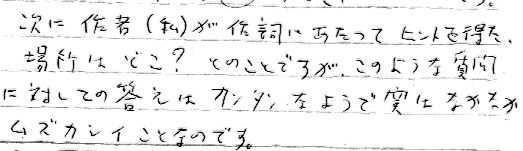 次に作者(私)が作詞にあたってヒントを得た、
場所はどこ?とのことですが、このような質問
に対しての答えはカンタンなようで実はなかなか
ムズカシイことなのです。